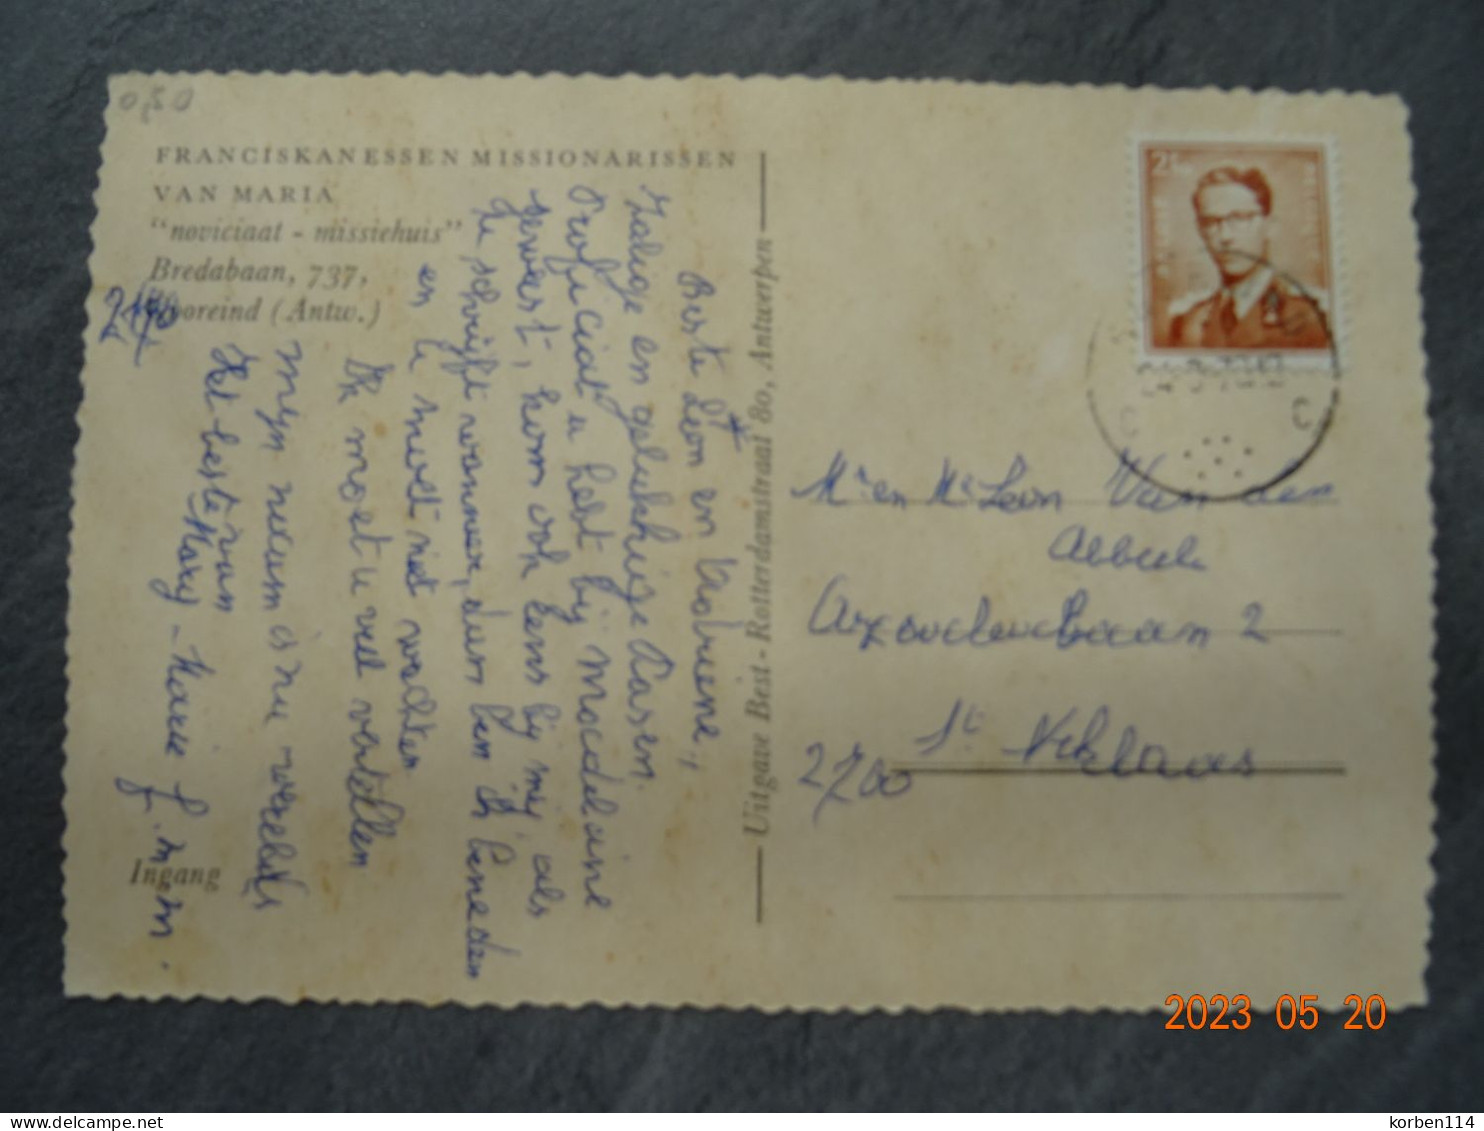 0,50
FRANCISKANESSEN MISSIONARISSEN
VAN MARIA
"noviciaat - missiehuis"
Bredabaan, 737,
Gooreind (Antw.)
Ingang
Uitgave Best - Rotterdamstraat 80, Antwerpen
Beste Léon en
Zalige en gelukkige Pasen.
Proficiat u hebt bij Madeleine
geweest, kom ook eens bij mij als
Je schrijft wanneer, dan ben ik beneden
en U moet niet wachten
Ik moet u veel vertellen
mijn naam is nu werelds
Het beste van
Mary - Marie f.m.m.
2F
Mr en Me Leon Van den
Abbeele
2
2700 St Niklaas
C C
2023 05 20
delcampe.net
korben114